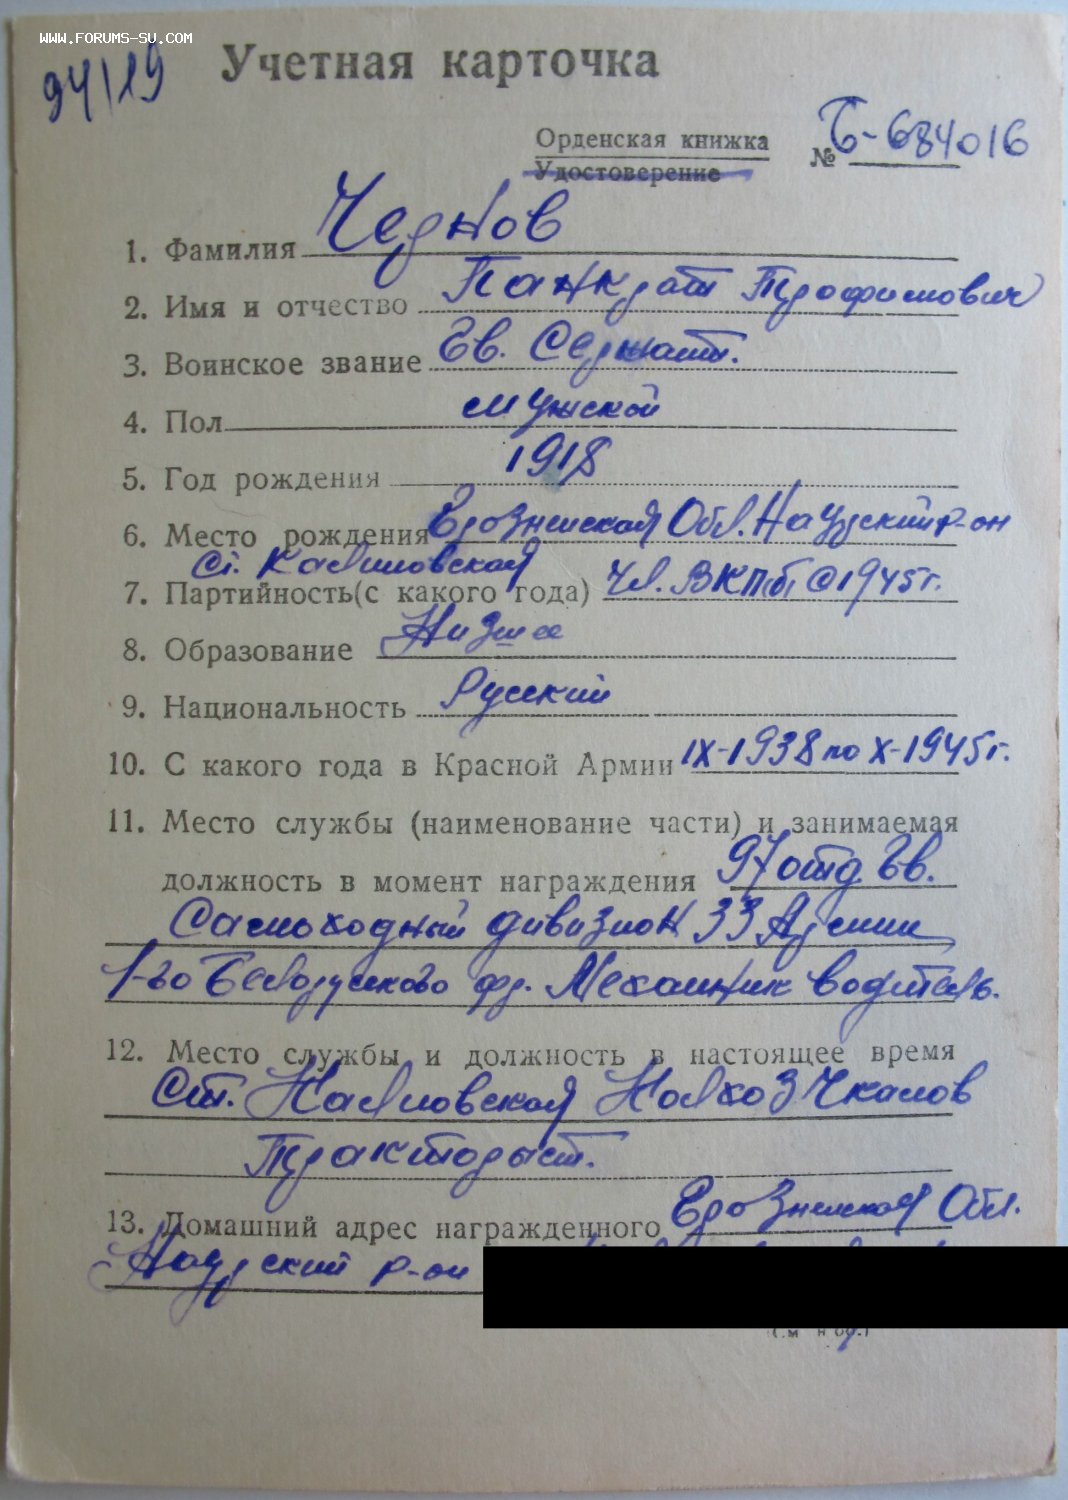 www.forums-su.com
94/19
Учетная карточка
Орденская книжка № Б-684016
Удостоверение
1. Фамилия Чернов
2. Имя и отчество Панкрат Трофимович
3. Воинское звание Гв. Сержант.
4. Пол мужской
5. Год рождения 1918
6. Место рождения Грозненская Обл. Наурский р-он
ст. Калиновская
7. Партийность(с какого года) Чл. ВКПб с 1945г.
8. Образование Низшее
9. Национальность Русский
10. С какого года в Красной Армии IX-1938 по X-1945г.
11. Место службы (наименование части) и занимаемая
должность в момент награждения 97 отд. Гв.
Самоходный дивизион 33 Армии
1-го Белорусского фр. Механик водитель.
12. Место службы и должность в настоящее время
Ст. Калиновская Колхоз Чкалов
Тракторист.
13. Домашний адрес награжденного Грозненская Обл.
Наурский р-он
(См н об.)